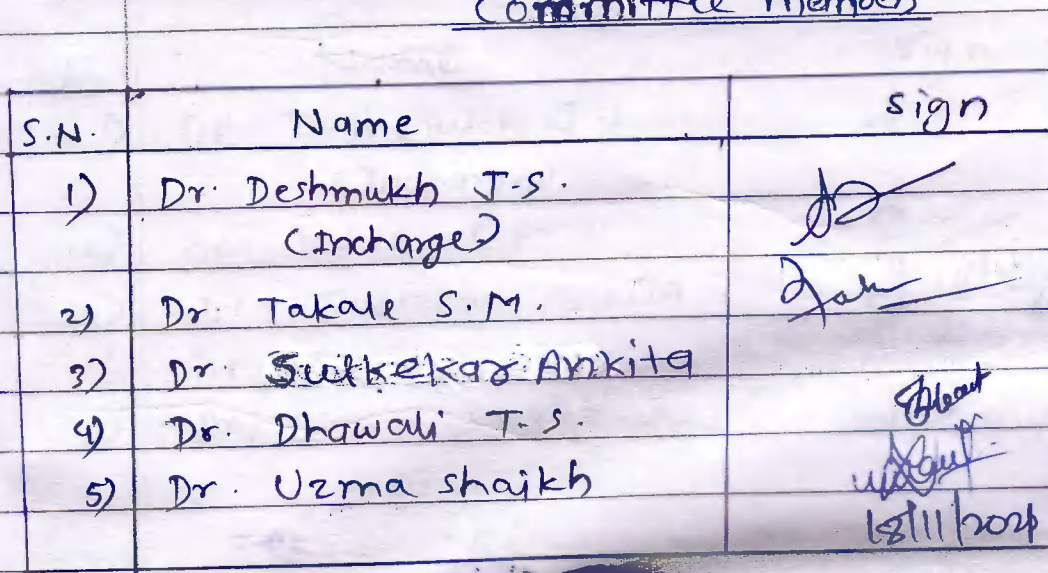 Committee Members
S.N. Name sign
1) Dr. Deshmukh J.S.
(Incharge)
2) Dr. Takale S.M.
3) Dr. Ankita
4) Dr. Dhawali T.S.
5) Dr. Uzma shaikh
18/11/